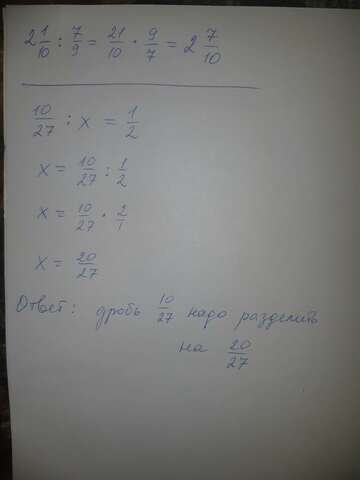 2 1/10 : 7/9 = 21/10 · 9/7 = 2 7/10
10/27 : x = 1/2
x = 10/27 : 1/2
x = 10/27 · 2/1
x = 20/27
Ответ: дробь 10/27 надо разделить
на 20/27